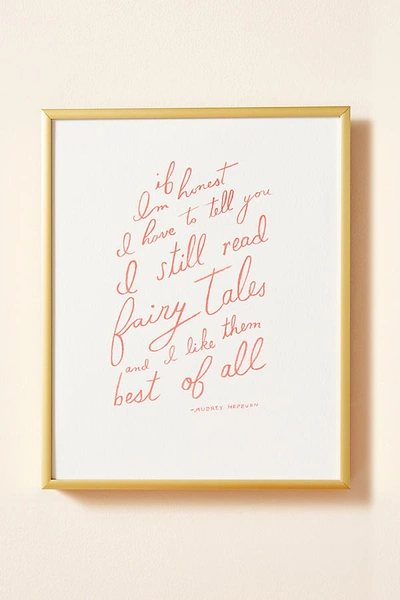 if
Im honest
I have to tell you
I still read
fairy tales
and I like them
best of all
-AUDREY HEPBURN